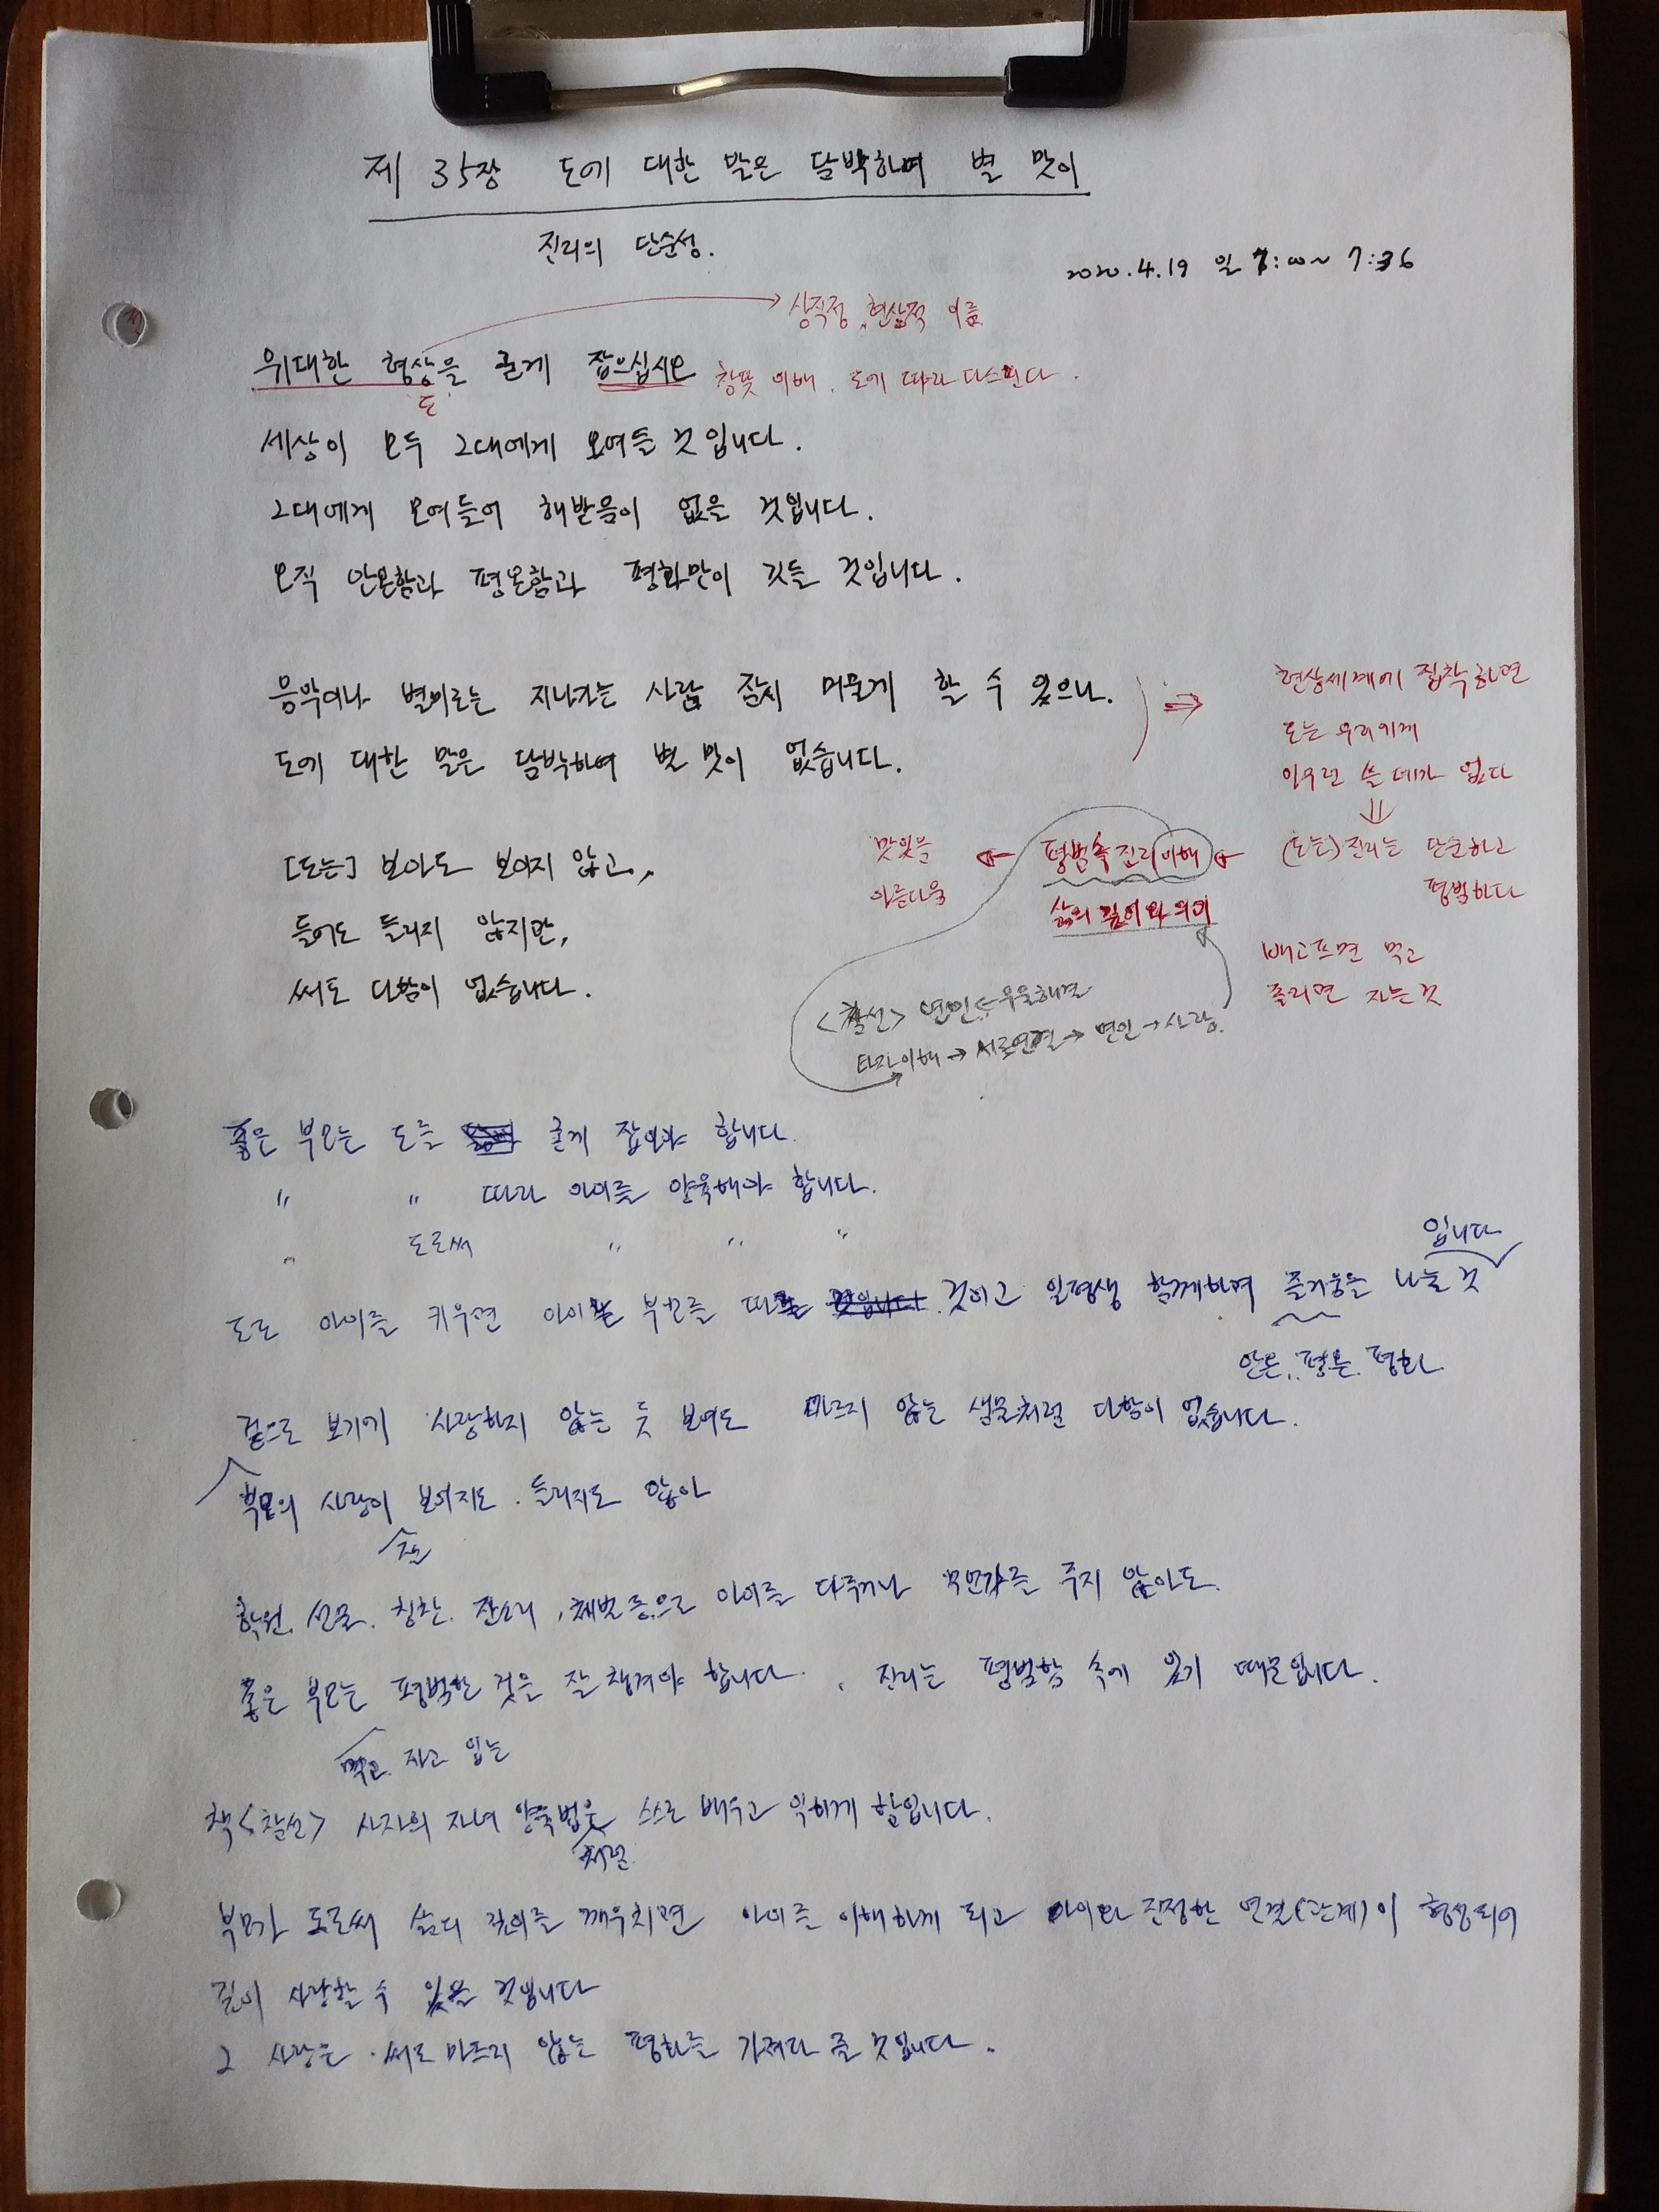 제 35장 도에 대한 말은 담박하여 별 맛이
진리의 단순성.
2020.4.19 일 7:00~ 7:36
상징적, 현상적 이름
위대한 형상을 굳게 잡으십시오 참뜻 이해. 도에 따라 다스린다.
도
세상이 모두 그대에게 모여들 것입니다.
그대에게 모여들어 해받음이 없을 것입니다.
오직 안온함과 평온함과 평화만이 깃들 것입니다.
음악이나 별미로는 지나가는 사람 잠시 머물게 할 수 있으나.
도에 대한 말은 담박하여 별 맛이 없습니다.
⇒ 현상세계에 집착하면
도는 우리에게
아무런 쓸 데가 없다
⇓
(도는) 진리는 단순하고
평범하다
배고프면 먹고
졸리면 자는 것
평범속 진리 이해
삶의 깊이와 의미
맛있음
아름다움
[도는] 보아도 보이지 않고,
들어도 들리지 않지만,
써도 다함이 없습니다.
<찰선> 연민 ← 우울해결
타자이해 → 서로연결 → 연민 → 사랑.
좋은 부모는 도를 굳게 잡아야 합니다.
" " 따라 아이를 양육해야 합니다.
" 도로써 " " "
입니다
도로 아이를 키우면 아이는 부모를 따를 것이고 일평생 함께하며 즐거움을 나눌 것
안온, 평온, 평화
겉으로 보기에 사랑하지 않는 듯 보여도 마르지 않는 샘물처럼 다함이 없습니다.
부모의 사랑이 보이지도. 들리지도 않아
학원. 선물. 칭찬. 잔소리, 체벌 등으로 아이를 다루거나 주지 않아도.
좋은 부모는 평범한 것을 잘 챙겨야 합니다. 진리는 평범함 속에 있기 때문입니다.
먹고. 자고 입는
책<찰선> 사자의 자녀 양육법은 스스로 배우고 익히게 함입니다.
처럼
부모가 도로써 삶의 깊이를 깨우치면 아이를 이해하게 되고 아이와 진정한 연결(관계)이 형성되어
깊이 사랑할 수 있을 것입니다
그 사랑은. 써도 마르지 않는 평화를 가져다 줄 것입니다.